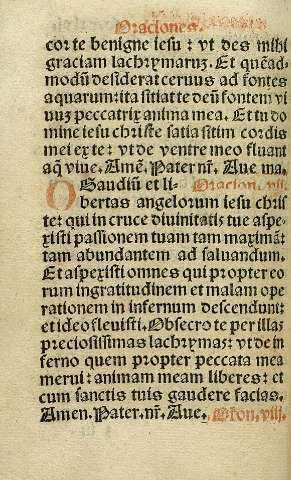 Oraciones.
cor te benigne iesu: vt des mihi
graciam lachrymarꝝ. Et quēad-
modū desiderat ceruus ad fontes
aquarum: ita sitiat te deū fontem vi
uuꝫ peccatrix anima mea. Et tu do
mine iesu christe satia sitim cordis
mei ex te: vt de ventre meo fluant
aq̄ viue. Amē. Pater nr̄. Aue ma.
O Gaudiū et li- Oracion .vij.
bertas angelorum iesu chris
te: qui in cruce diuinitatis tue aspe-
xisti passionem tuam tam maximā: 
tam abundantem ad saluandum.
Et aspexisti omnes qui propter eo
rum ingratitudinem et malam ope
rationem in infernum descendunt:
et ideo fleuisti. Obsecro te per illas
preciosissimas lachrymas: vt de in
ferno quem propter peccata mea
merui: animam meam liberes: et
cum sanctis tuis gaudere facias.
Amen. Pater. nr̄. Aue. Orōn. viij.